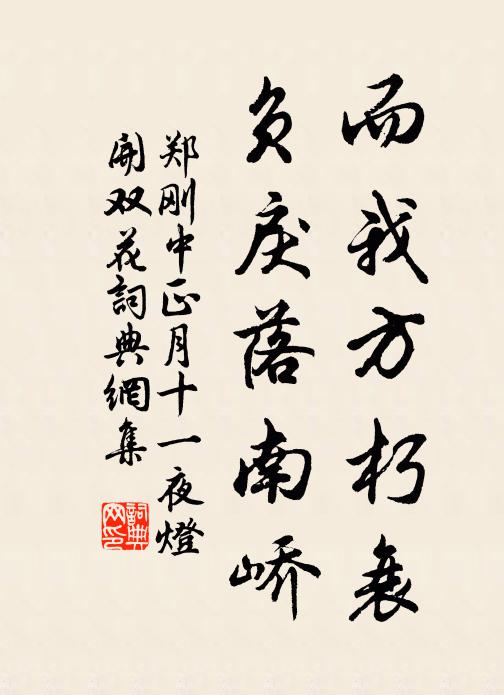 而我方朽衰
负戾落南峤
郑刚中正月十一夜燈
開双花詞典網集
詞典网印